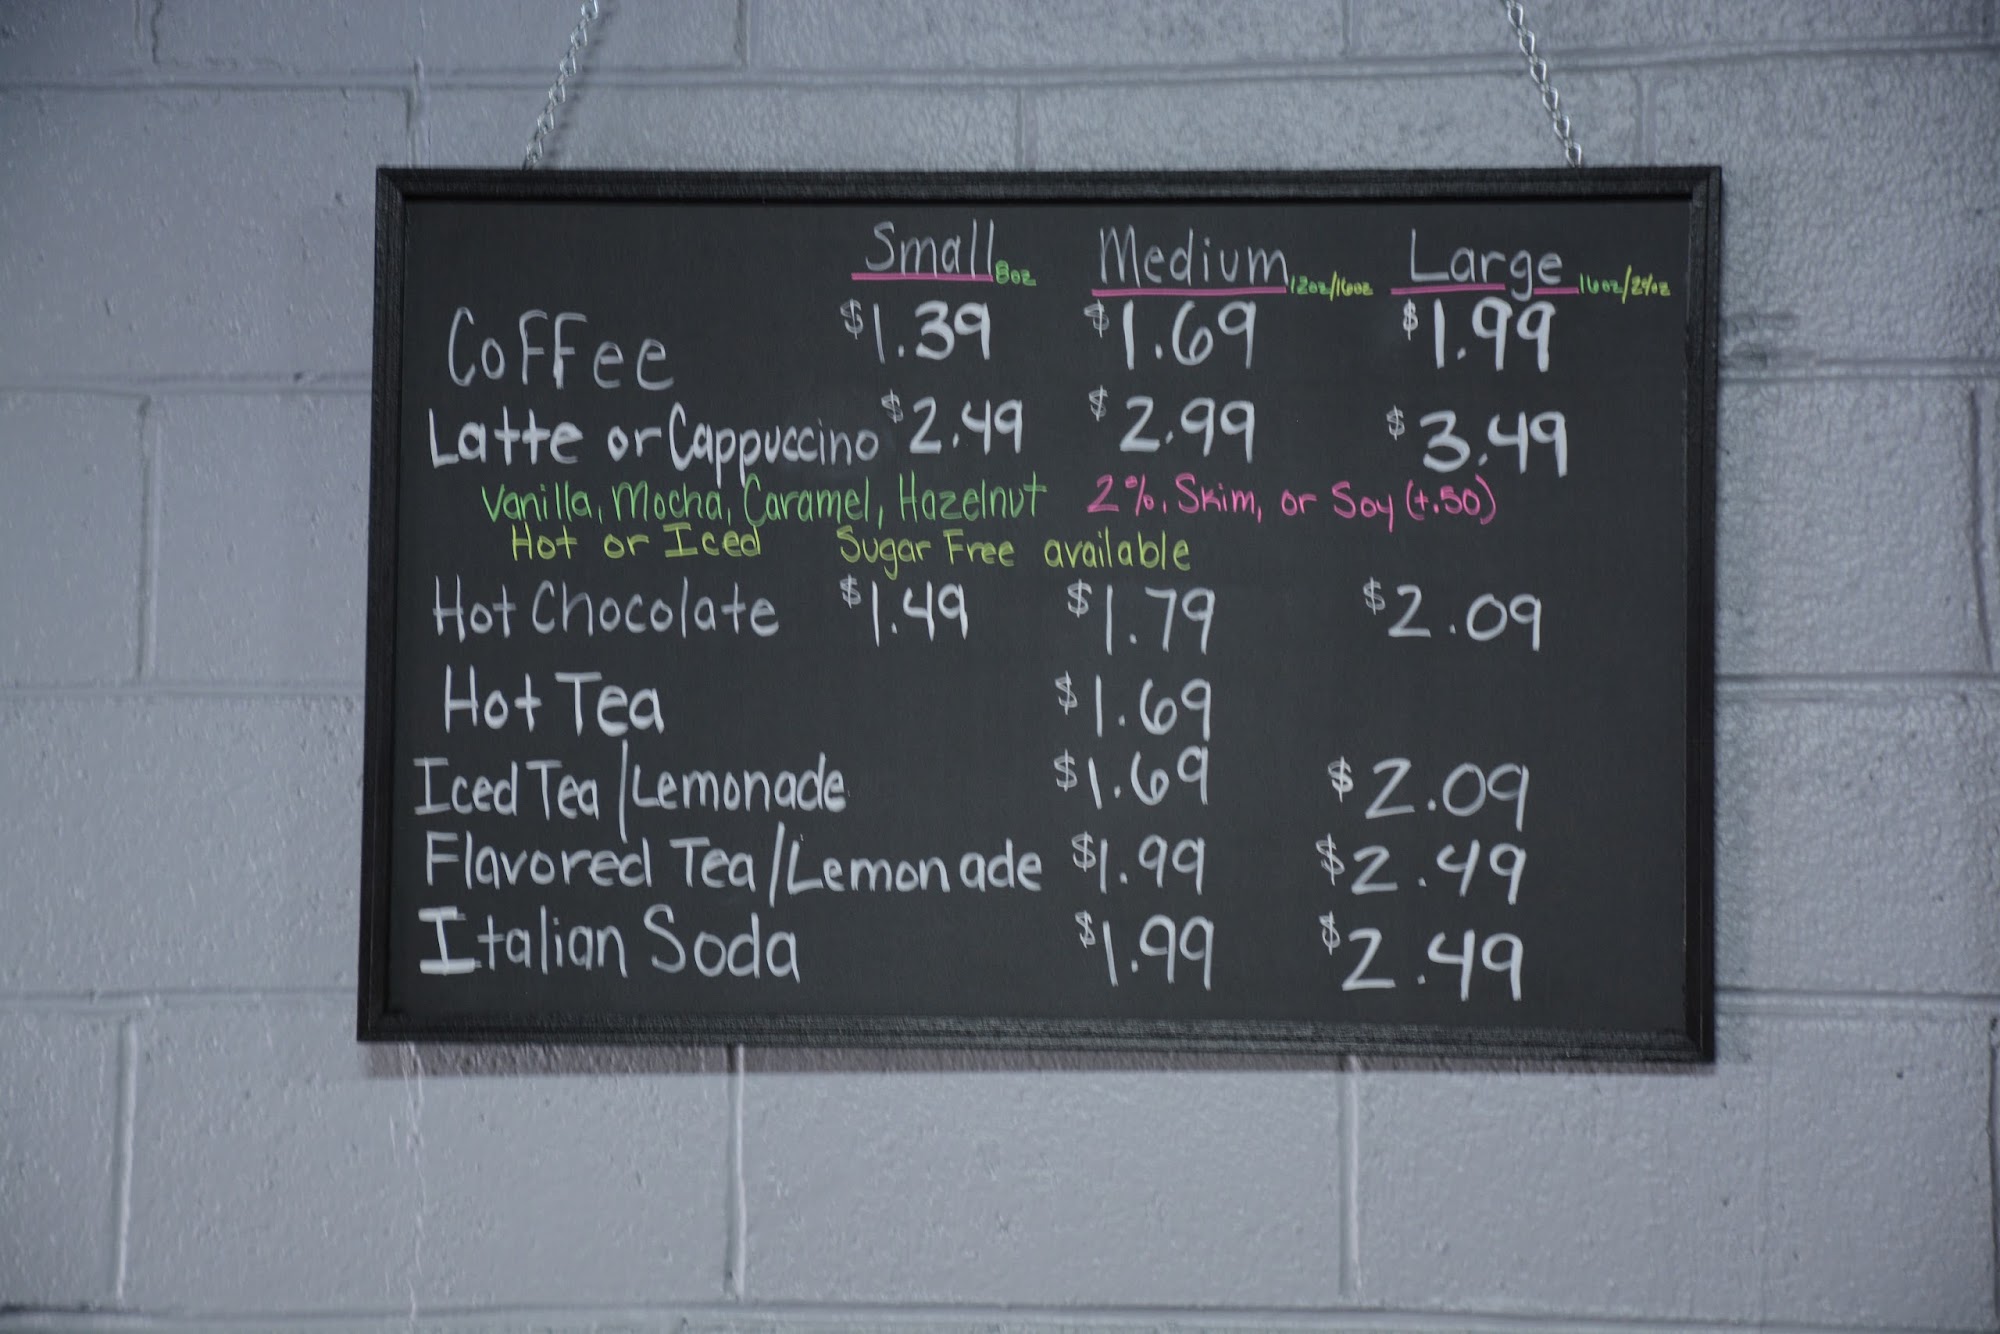 Small 8oz Medium 12oz/16oz Large 16oz/24oz
Coffee $1.39 $1.69 $1.99
Latte or Cappuccino $2.49 $2.99 $3.49
Vanilla, Mocha, Caramel, Hazelnut 2%, Skim, or Soy (+.50)
Hot or Iced Sugar Free available
Hot Chocolate $1.49 $1.79 $2.09
Hot Tea $1.69
Iced Tea/Lemonade $1.69 $2.09
Flavored Tea/Lemonade $1.99 $2.49
Italian Soda $1.99 $2.49